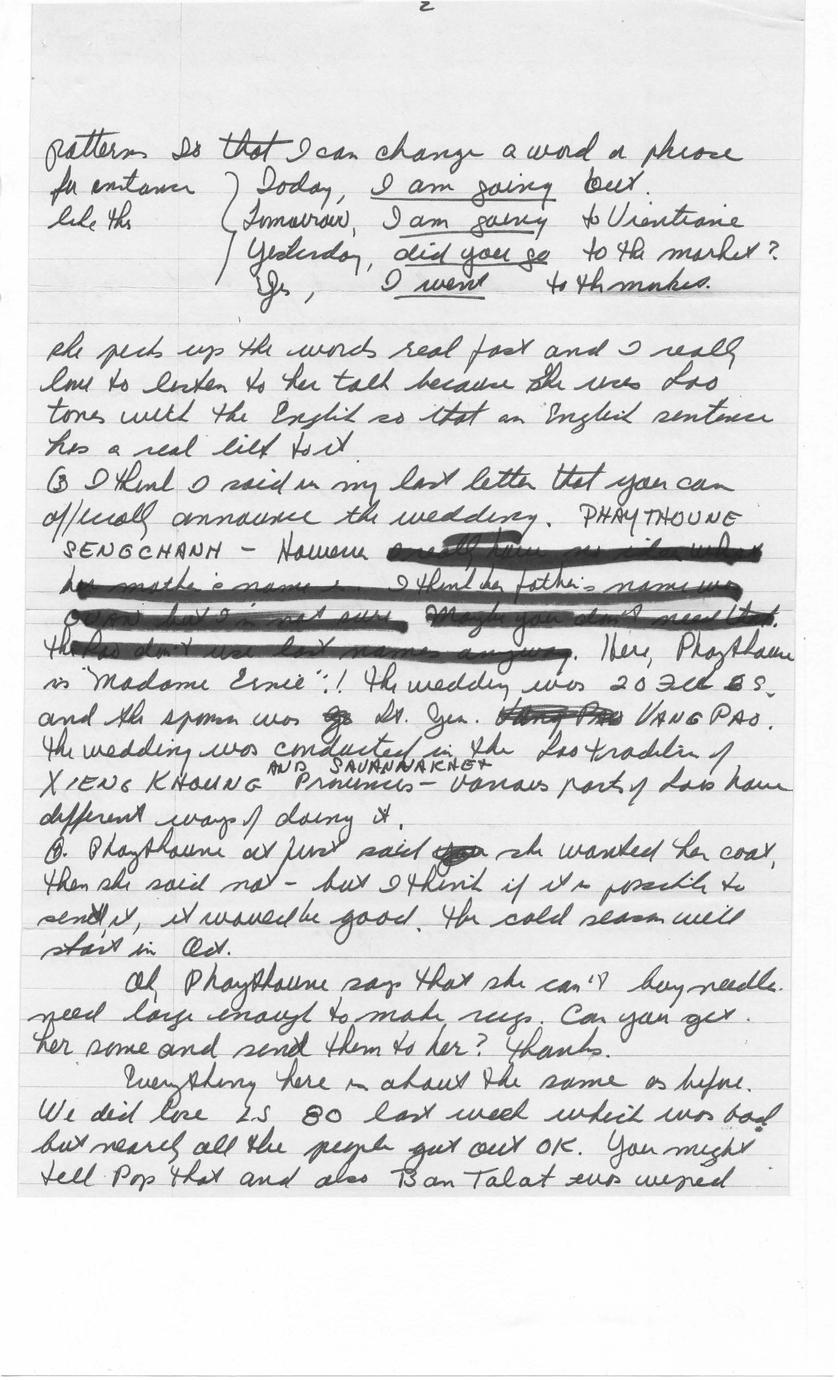 2
patterns so that I can change a word or phrase
for instance } Today, I am going out.
like this { Tomorrow, I am going to Vientiane
Yesterday, did you go to the market?
Yes, I went to the market.
she picks up the words real fast and I really
love to listen to her talk because she uses Lao
tones with the English so that an English sentence
has a real lilt to it
③ I think I said in my last letter that you can
officially announce the wedding. PHAYTHOUNE
SENGCHANH - However I really have no idea what
her mother's name is. I think her father's name was
OUAN but I'm not sure. Maybe you don't need that.
the Lao don't use last names anyway. Here, Phaythoune
is "Madame Ernie"!! The wedding was
and the sponsor was Lt. Gen. Vang Pao VANG PAO.
The wedding was conducted in the Lao tradition of
XIENG KHOUNG AND SAVANNAKHET Provinces - various parts of Laos have
different ways of doing it.
Phaythoune at first said she wanted her coat,
then she said not - but I think if it is possible to
send it, it would be good. The cold season will
start in Oct.
Oh, Phaythoune says that she can't buy needle
need large enough to make rugs. Can you get
her some and send them to her? Thanks.
Everything here is about the same as before.
We did lose LS 80 last week which was bad
but nearly all the people got out OK. You might
tell Pop that and also Ban Talat was wiped